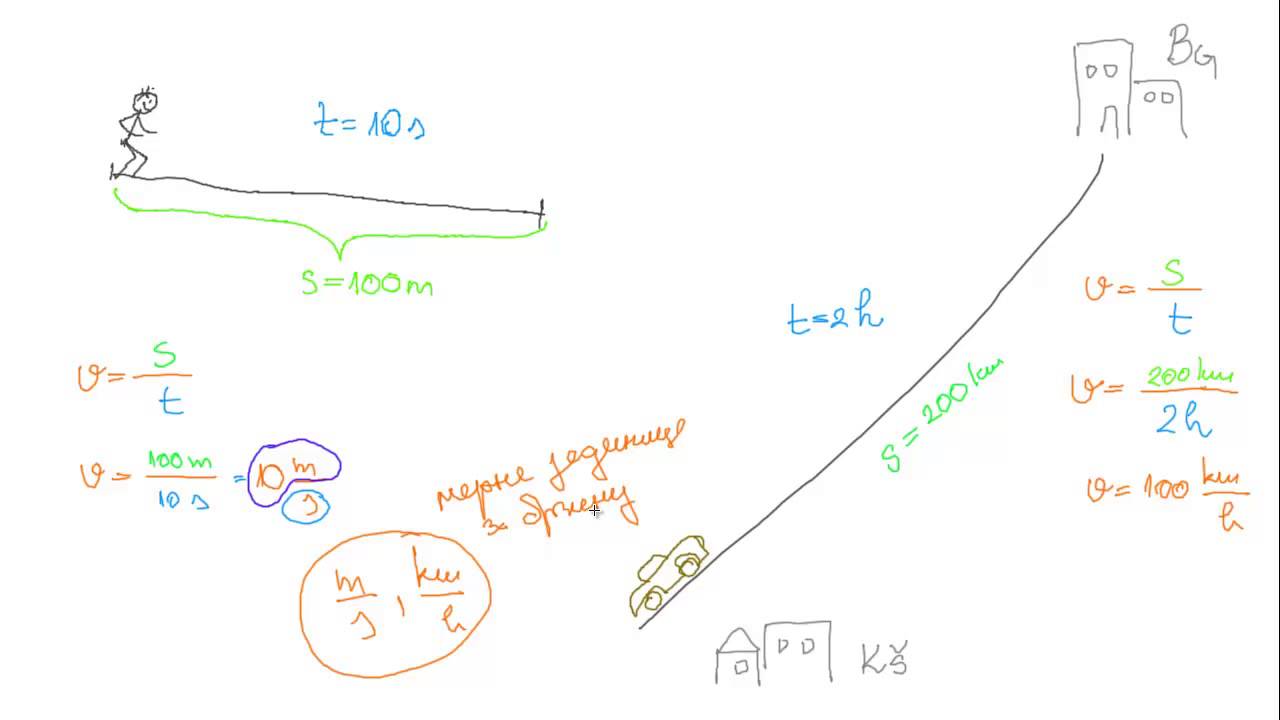 t = 10 s
s = 100 m
v = s/t
v = 100 m / 10 s = 10 m/s
m/s , km/h
мерне јединице
за брзину
BG
t = 2 h
s = 200 km
v = s/t
v = 200 km / 2 h
v = 100 km/h
KŠ